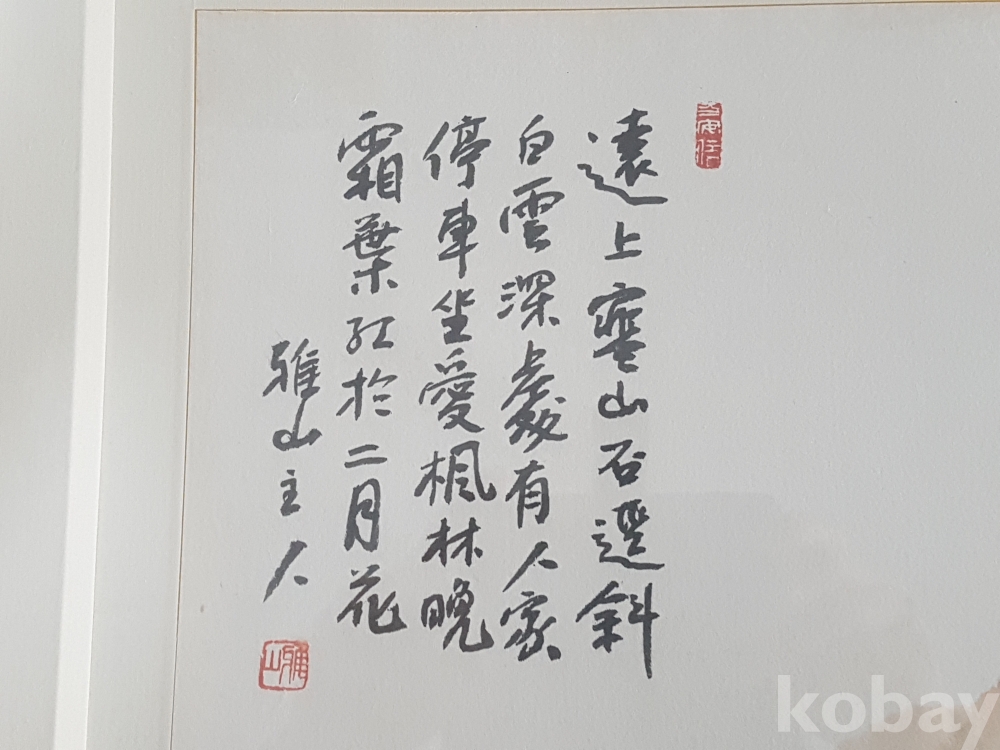 遠上寒山石逕斜
白雲深處有人家
停車坐愛楓林晚
霜葉紅於二月花
雅山主人
雅山
kobay